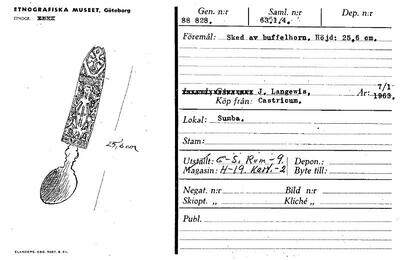 ETNOGRAFISKA MUSEET, Göteborg
ETNOGR.
25,6 cm
ELANDERS. GBG. 1957. 5. FII.
Gen. n:r Saml. n:r Dep. n:r
88 828. 63.1/4.
Föremål: Sked av buffelhorn. Höjd: 25,6 cm.
J. Langewis, År: 7/1-
Köp från: Castricum. 1963.
Lokal: Sumba.
Stam:
Utställt: E-S. Rum-9. Depon.:
Magasin: H-19. Kart.-2 Byte till:
Negat. n:r Bild n:r
Skiopt. „ Kliché „
Publ.